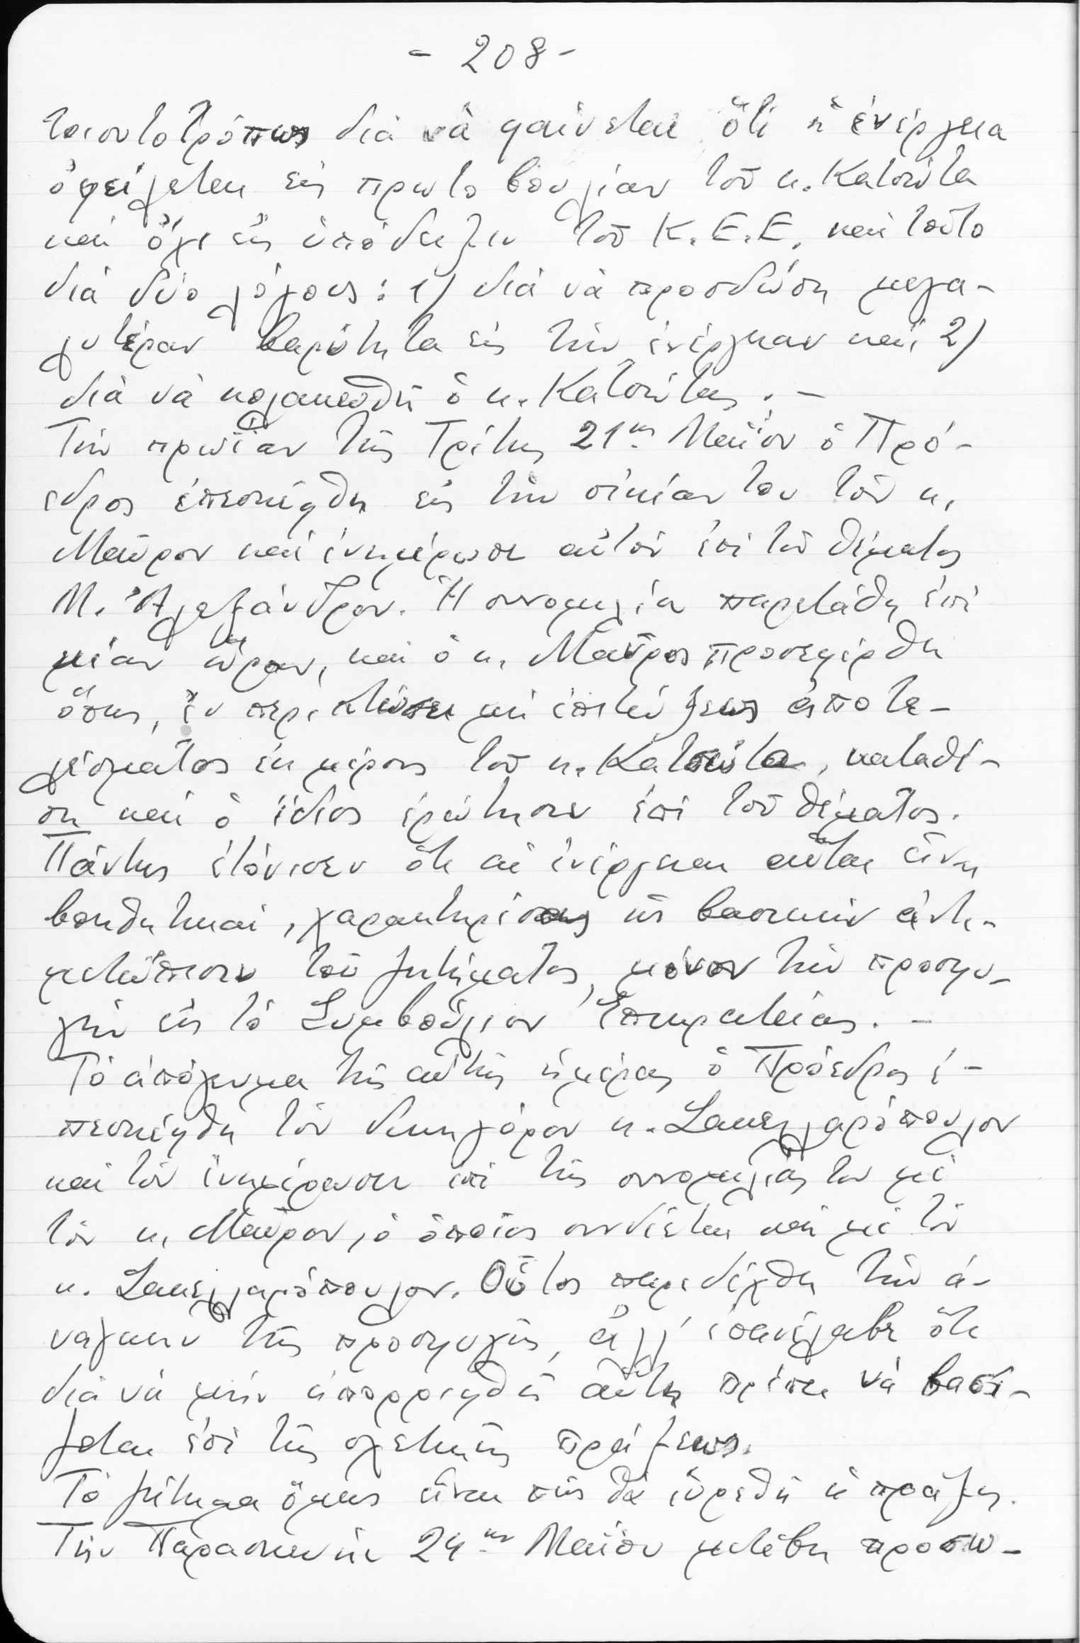 - 208 -
τοιουτοτρόπως διά νά φαίνεται ὅτι ἡ ἐνέργεια
ὀφείλεται εἰς πρωτοβουλίαν τοῦ κ. Κατσώτα
καί ὄχι εἰς ὑπόδειξιν τοῦ Κ.Ε.Ε. καί τοῦτο
διά δύο λόγους: 1) διά νά προσδώση μεγα-
λυτέραν βαρύτητα εἰς τήν ἐνέργειαν καί 2)
διά νά κολακευθῆ ὁ κ. Κατσώτας. -
Τήν πρωΐαν τῆς Τρίτης 21ης Μαΐου ὁ Πρό-
εδρος ἐπεσκέφθη εἰς τήν οἰκίαν του τόν κ.
Μαῦρον καί ἐνημέρωσε αὐτόν ἐπί τοῦ θέματος
Μ. Ἀλεξάνδρου. Ἡ συνομιλία παρετάθη ἐπί
μίαν ὥραν, καί ὁ κ. Μαῦρος προσεφέρθη
ὅπως, ἐν περιπτώσει μή ἐπιτεύξεως ἀποτε-
λέσματος ἐκ μέρους τοῦ κ. Κατσώτα, καταθέ-
ση καί ὁ ἴδιος ἐρώτησιν ἐπί τοῦ θέματος.
Πάντως ἐτόνισεν ὅτι αἱ ἐνέργειαι αὗται εἶναι
βοηθητικαί, χαρακτηρίσας ὡς βασικήν ἀντι-
μετώπισιν τοῦ ζητήματος, μόνον τήν προσφυ-
γήν εἰς τό Συμβούλιον Ἐπικρατείας. -
Τό ἀπόγευμα τῆς αὐτῆς ἡμέρας ὁ Πρόεδρος ἐ-
πεσκέφθη τόν δικηγόρον κ. Σακελλαρόπουλον
καί τόν ἐνημέρωσε ἐπί τῆς συνομιλίας του μέ
τόν κ. Μαῦρον, ὁ ὁποῖος συνδέεται καί μέ τόν
κ. Σακελλαρόπουλον. Οὗτος παρεδέχθη τήν ἀ-
νάγκην τῆς προσφυγῆς, ἀλλ' ἐπανέλαβε ὅτι
διά νά μήν ἀπορριφθῆ αὕτη πρέπει νά βασί-
ζεται ἐπί τῆς σχετικῆς πράξεως.
Τό ζήτημα ὅμως εἶναι πῶς θά εὑρεθῆ ἡ πρᾶξις.
Τήν Παρασκευήν 24ην Μαΐου μετέβη προσω-